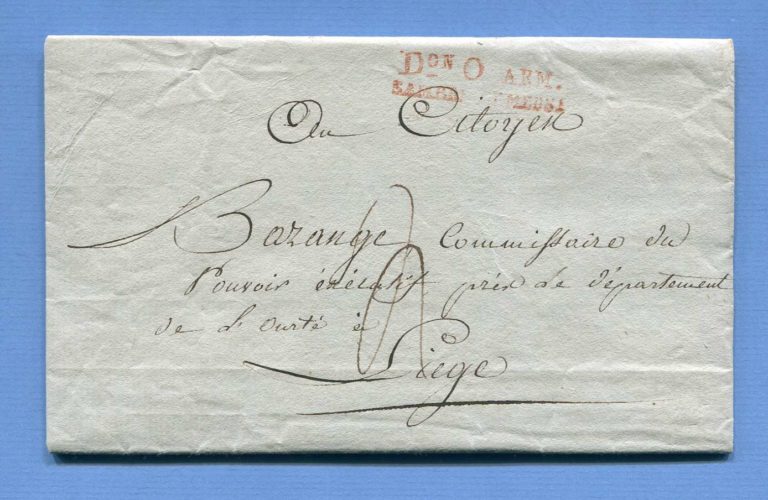 Don O ARM.
SAMBRE ET MEUSE
Au Citoyen
Bazange Commissaire du
Pouvoir éxécutif près le département
de l'Ourté à
Liége